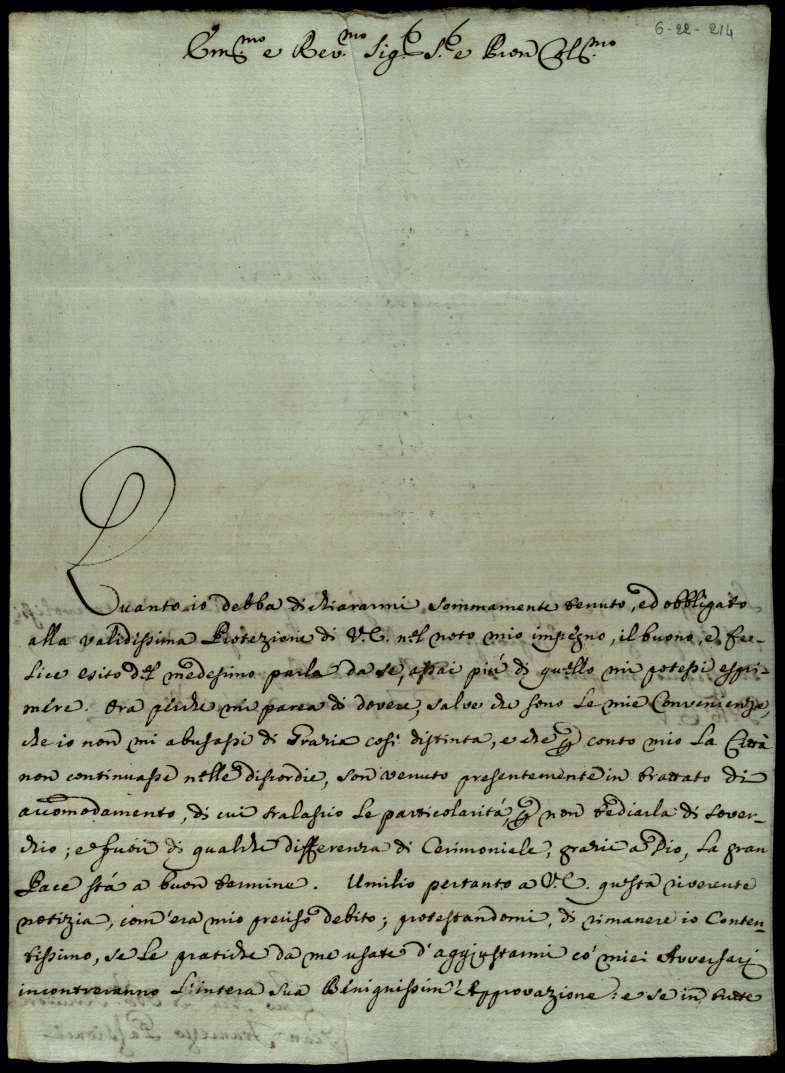 6-22-214
Em.mo e Rev.mo Sig.r S.r e Pron Col.mo
Quanto io debba dichiararmi sommamente tenuto, ed obbligato
alla validissima Protezione di V.E. nel noto mio impegno, il buono, e fe-
lice esito del medesimo parla da se, assai più di quello mi potessi espri-
mere. Ora perche mi parea di dovere, salve che sono le mie Convenienze,
che io non mi abusassi di Grazia così distinta, e che p conto mio La Città
non continuasse nelle discordie, son venuto presentemente in trattato di
accomodamento, di cui tralascio le particolarità, p non tediarla di sover-
chio; e fuori di qualche differenza di Cerimoniale, grazie a Dio, La gran
Pace stà a buon termine. Umilio pertanto a V.E. questa riverente
notizia, com'era mio preciso debito; protestandomi, di rimanere io Conten-
tissimo, se le pratiche da me usate d'aggiustarmi co' miei Avversarj
incontreranno L'intera sua Benignissim'Approvazione: e se in tutte